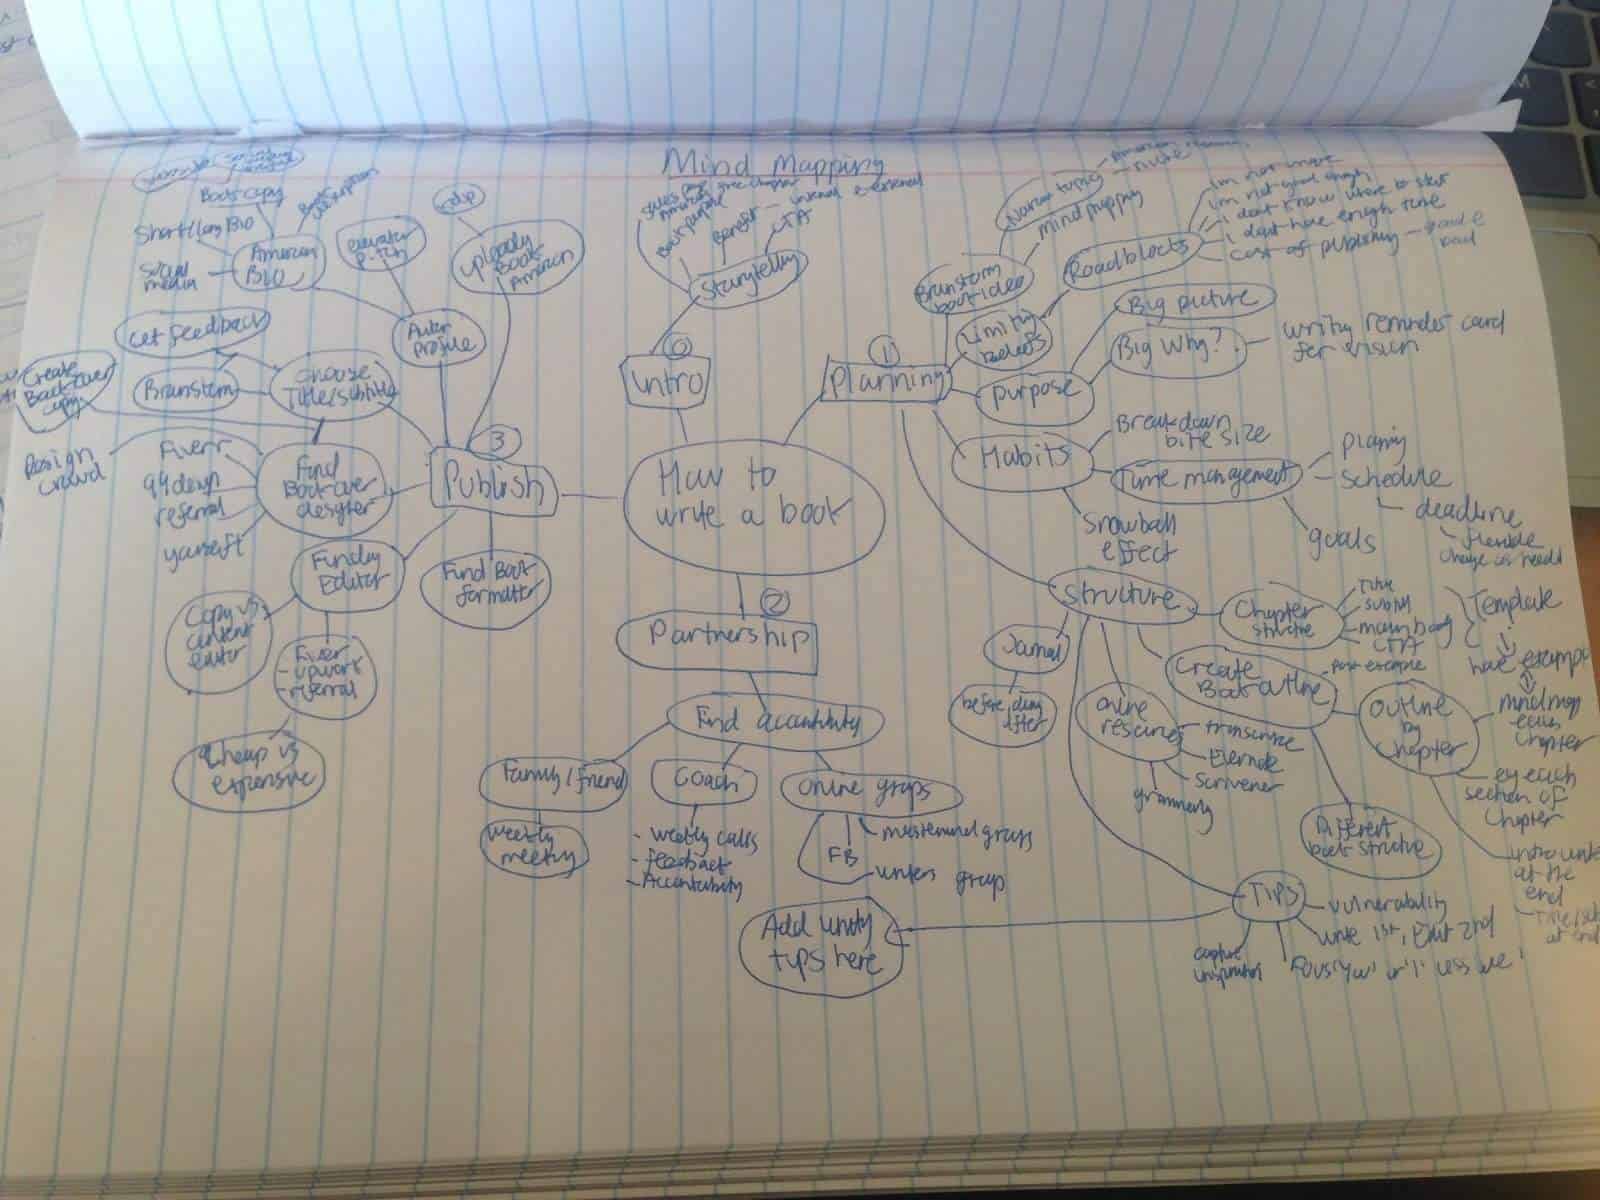 Mind Mapping
How to
write a book
0
intro
Storytelling
Sales page
Book purpose
Benefit - internal & external
CTA
1
Planning
Brainstorm
book idea
Narrow topic
niche
mind mapping
Limiting
beliefs
Roadblocks
im not good enough
I dont know where to start
I dont have enough time
cost of publishing
Purpose
Big picture
Big Why?
writing reminder card
for vision
Habits
Breakdown
bite size
Time management
planning
schedule
deadline
flexible
change as needed
goals
snowball
effect
Structure
Chapter
structure
Title
main body
CTA
Template
have example
mindmap
each
chapter
Create
Book outline
Outline
by
Chapter
section of
chapter
at the
end
at end
Different
book structure
Journal
before, during
after
online
resources
transcribe
Evernote
Scrivener
grammarly
Tips
vulnerability
write 1st, Edit 2nd
Focus 'You' or 'I' less we'
capture
inspiration
Add writing
tips here
2
Partnership
Find accountability
Family/friend
weekly
meeting
Coach
- weekly calls
- feedback
- Accountability
online groups
mastermind groups
FB
writers group
3
Publish
uploading
Book
Amazon
kdp
Author
profile
elevator
pitch
Amazon
BIO
Book copy
Book description
Short/long Bio
social
media
Choose
Title/subtitle
Get feedback
Brainstorm
Create
Back cover
copy
Find
Book cover
designer
Fiverr
Design
crowd
99 design
referral
yourself
Finding
Editor
Copy vs
content
editor
Fiverr
- upwork
- referral
Cheap vs
expensive
Find Book
formatter